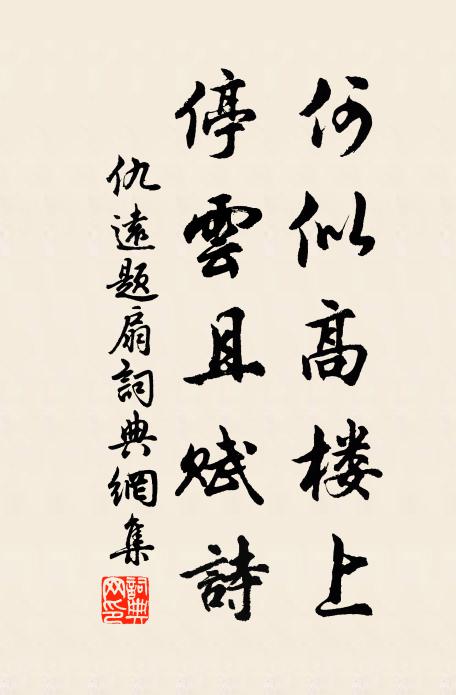 何似高楼上
停雲且赋詩
仇遠題扇詞典網集
詞典網印